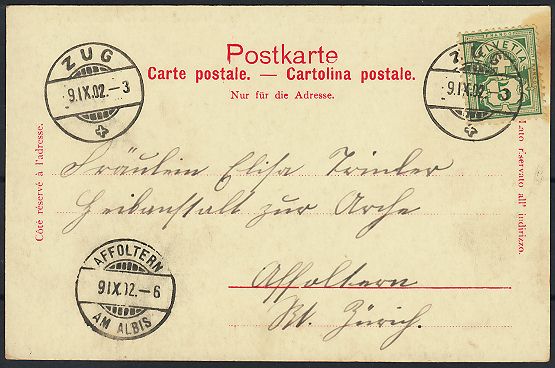 Postkarte
Carte postale. — Cartolina postale.
Nur für die Adresse.
ZUG
9.IX.02.-3
ZUG
9.IX.02.
FRANCO
HELVETIA
5
Côté réservé à l'adresse.
Lato riservato all' indirizzo.
Fräulein Elisa Trinler
Heilanstalt zur Arche
Affoltern
Kt. Zürich.
AFFOLTERN
9.IX.02.-6
AM ALBIS